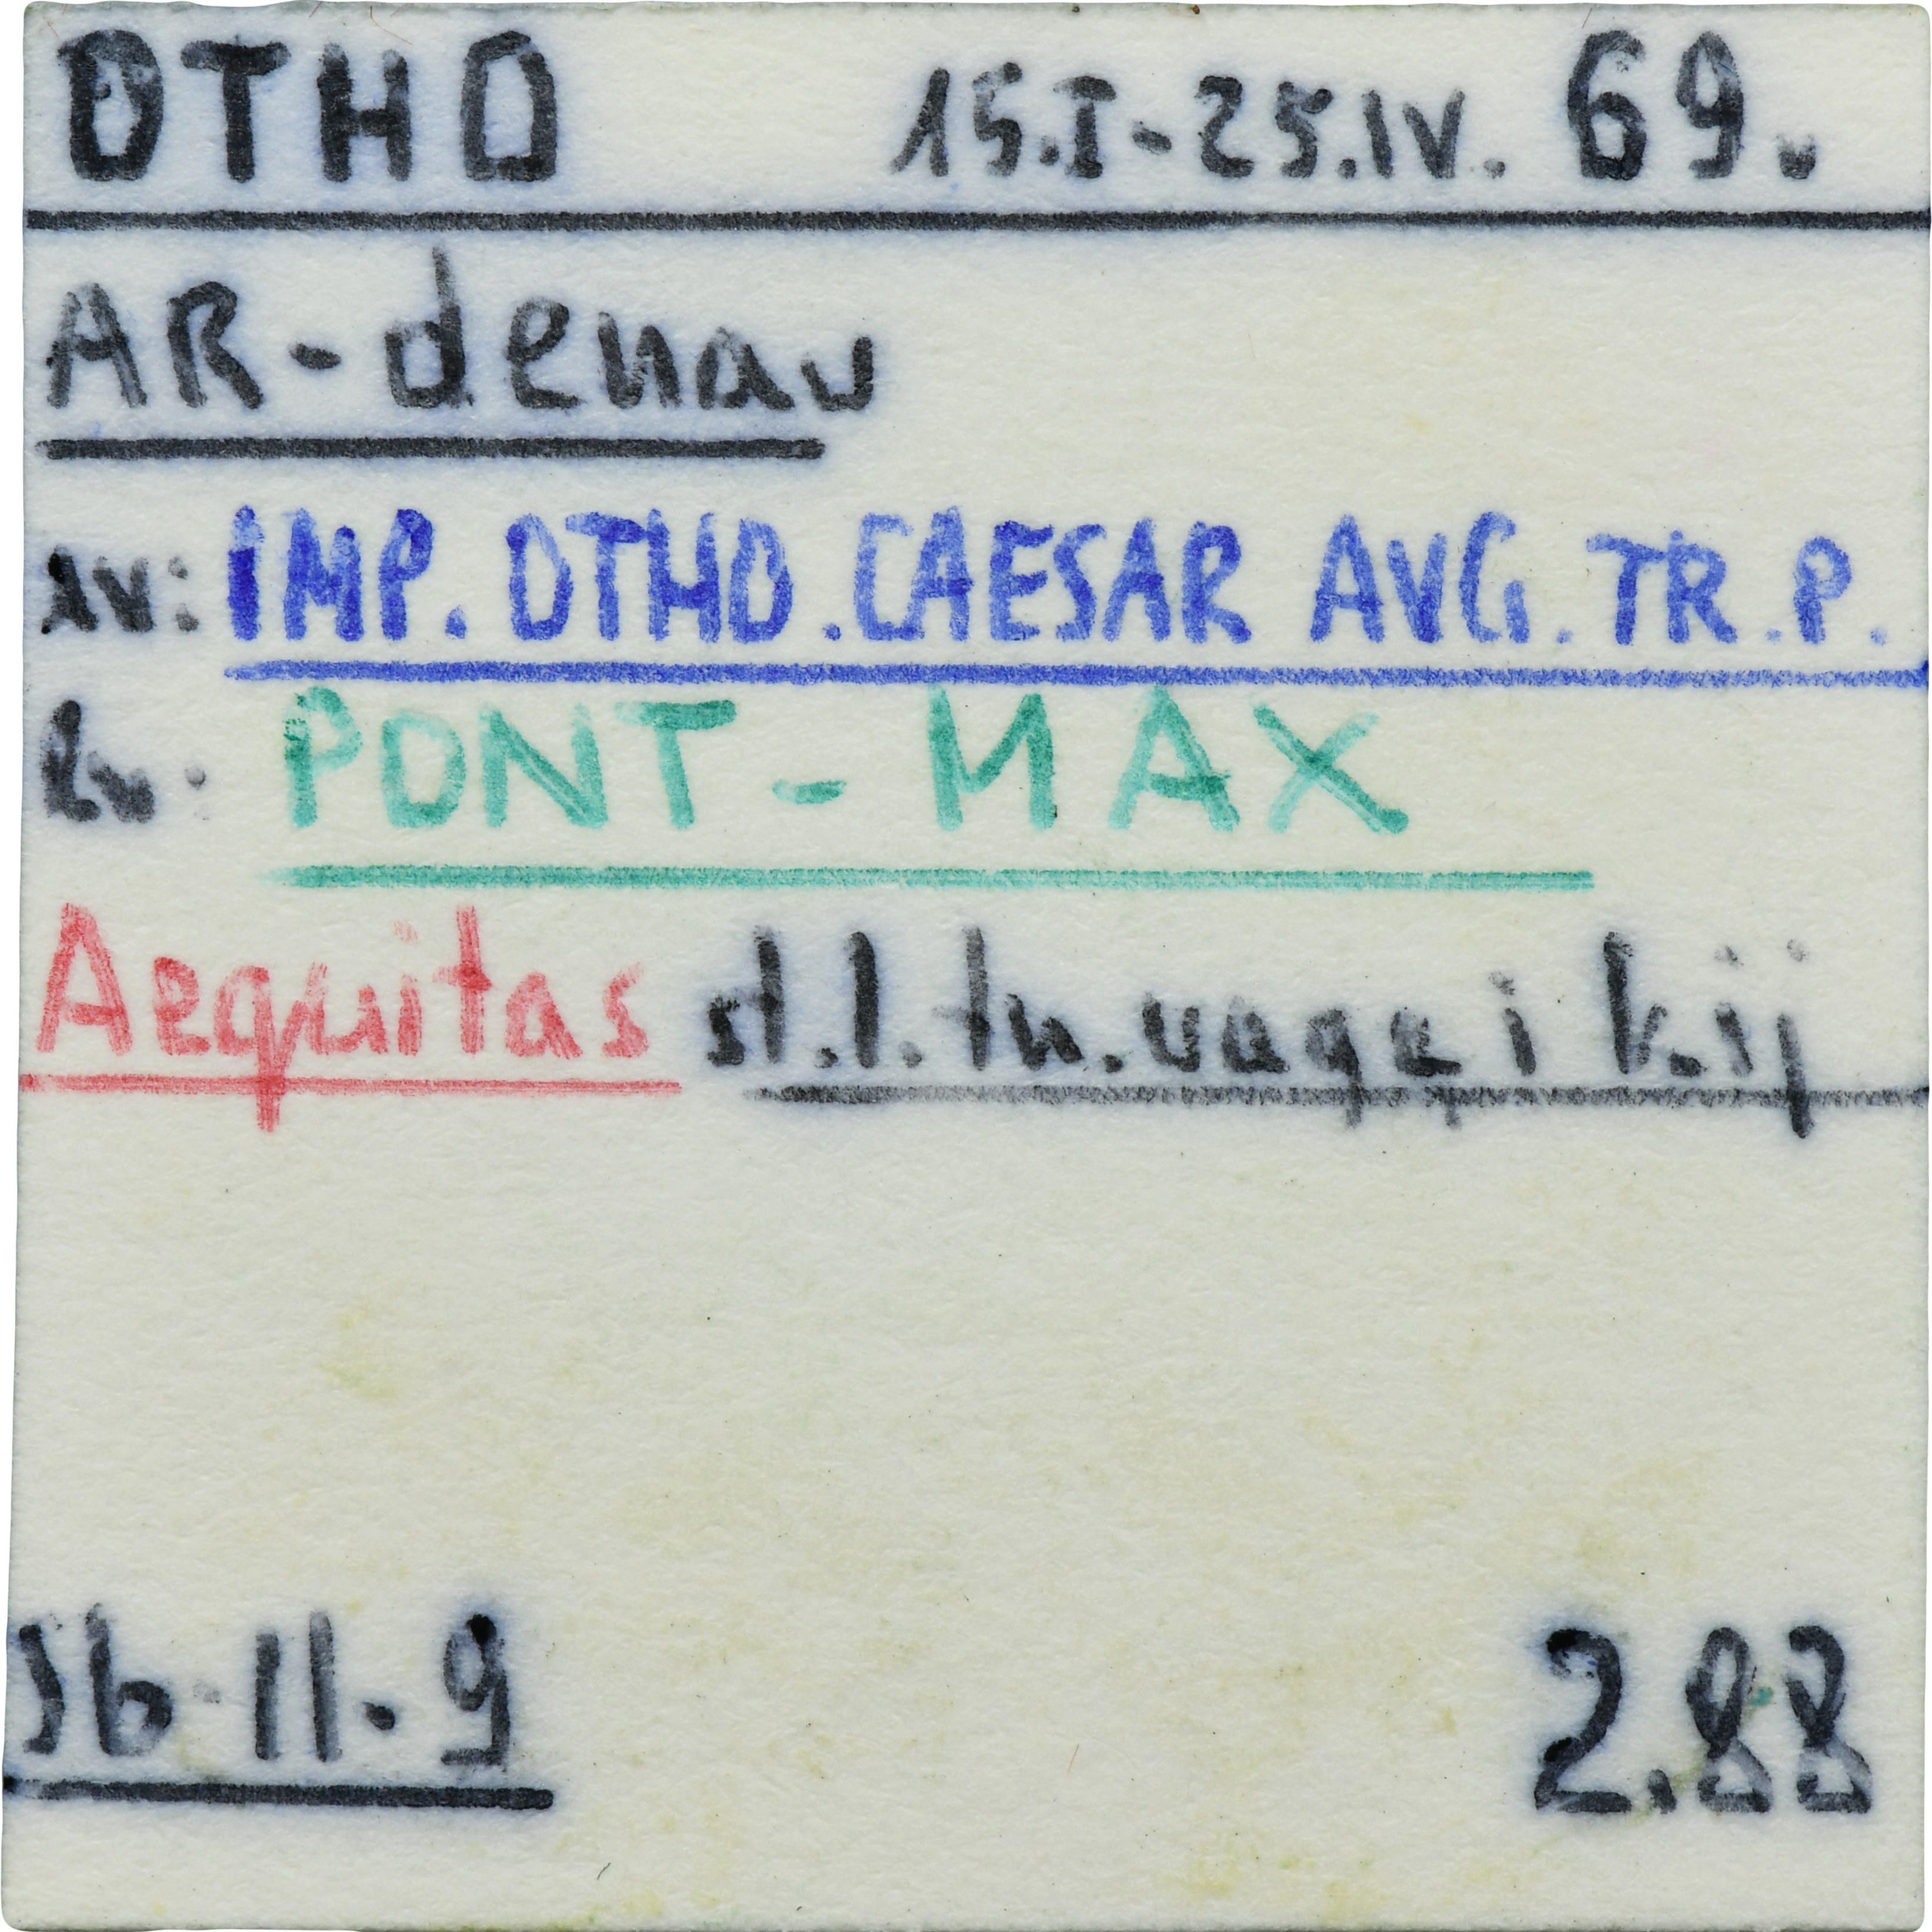 OTHO 15.I-25.IV. 69.
AR-denar
AV: IMP. OTHO. CAESAR AVG. TR. P.
Rv: PONT - MAX
Aequitas st.l.tr. vage i k.ij
Sb-11-9 2.88